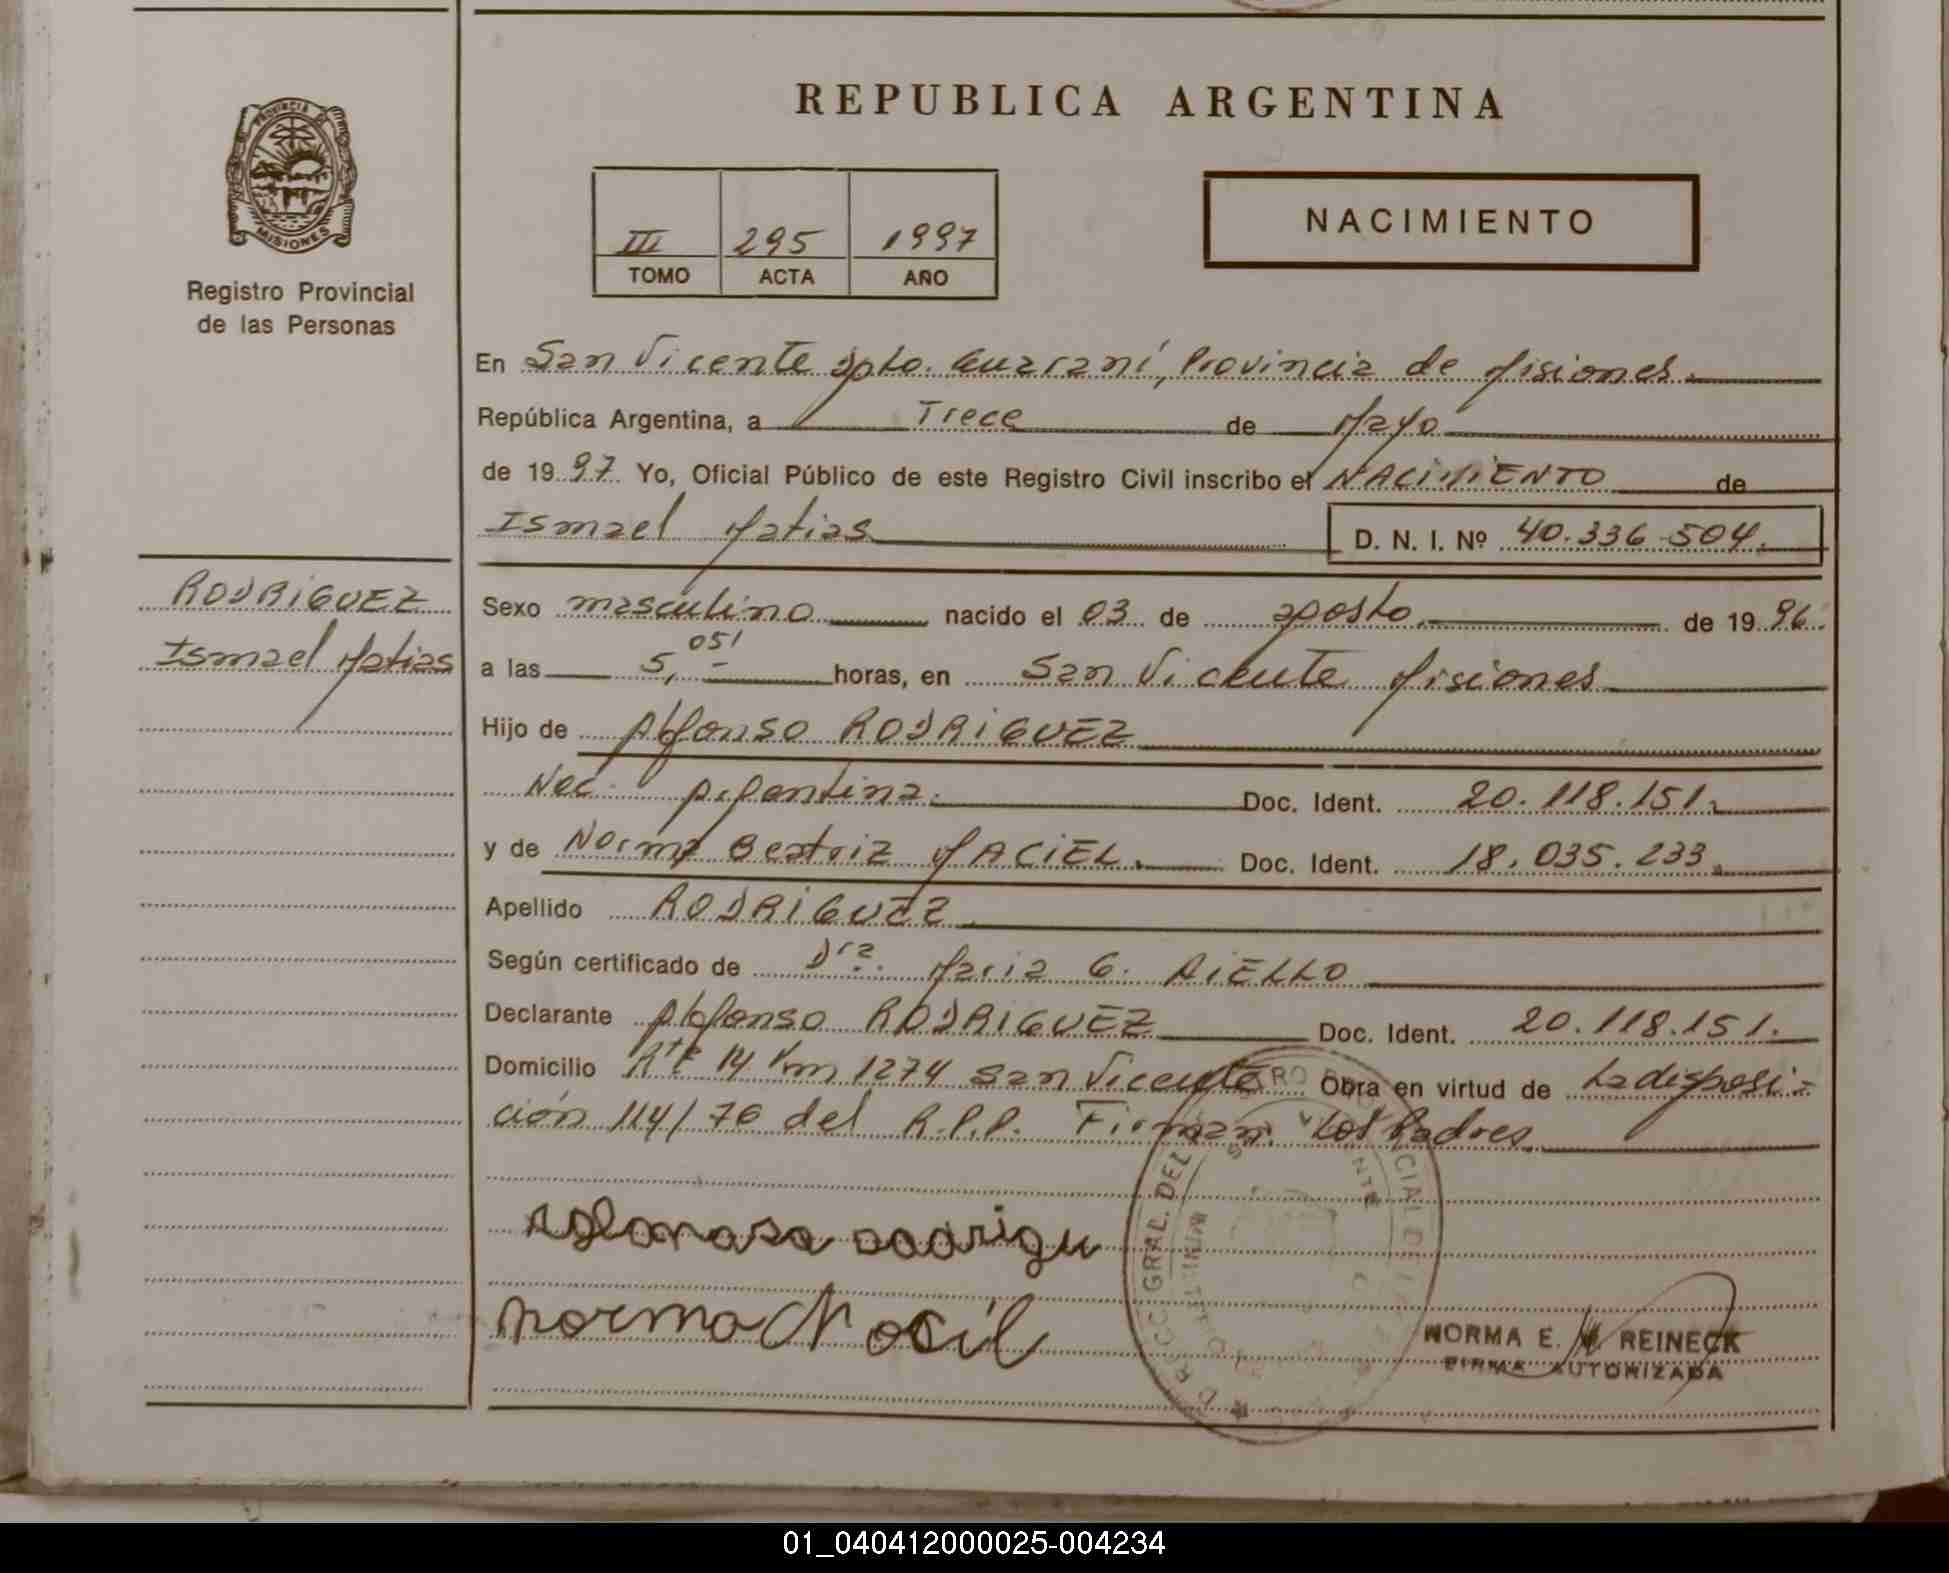 REPUBLICA ARGENTINA
PROVINCIA DE MISIONES
Registro Provincial
de las Personas
III 295 1997
TOMO ACTA AÑO
NACIMIENTO
En San Vicente Dpto. Guaraní, Provincia de Misiones.
República Argentina, a Trece de Mayo
de 1997 Yo, Oficial Público de este Registro Civil inscribo el NACIMIENTO de
Ismael Matias D. N. I. Nº 40.336.504.
RODRIGUEZ
Ismael Matias
Sexo masculino nacido el 03 de agosto. de 1996.
a las 5,05' horas, en San Vicente Misiones
Hijo de Alfonso RODRIGUEZ
Nac. Argentina. Doc. Ident. 20.118.151.
y de Norma Beatriz MACIEL. Doc. Ident. 18.035.233.
Apellido RODRIGUEZ.
Según certificado de Dra. Maria G. AIELLO
Declarante Alfonso RODRIGUEZ Doc. Ident. 20.118.151.
Domicilio Rta 14 Km 1274 San Vicente Obra en virtud de La disposi-
ción 114/76 del R.P.P. Firman Los Padres.
norma
NORMA E. REINECK
FIRMA AUTORIZADA
01_040412000025-004234